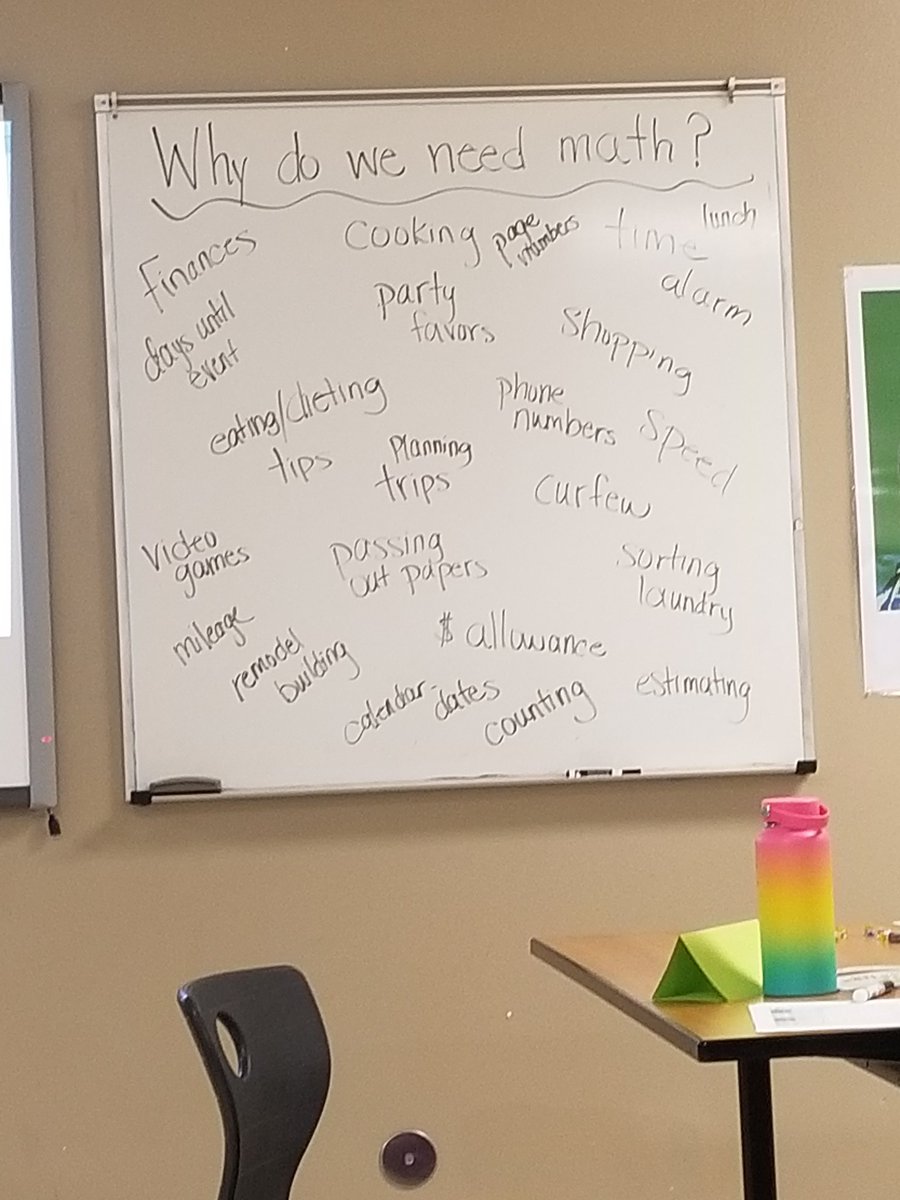 Why do we need math?
Finances
cooking
page
numbers
time
lunch
alarm
days until
event
party
favors
Shopping
eating/dieting
tips
Planning
trips
phone
numbers
Speed
curfew
video
games
passing
out papers
sorting
laundry
mileage
remodel
building
$ allowance
calendar-
dates
counting
estimating